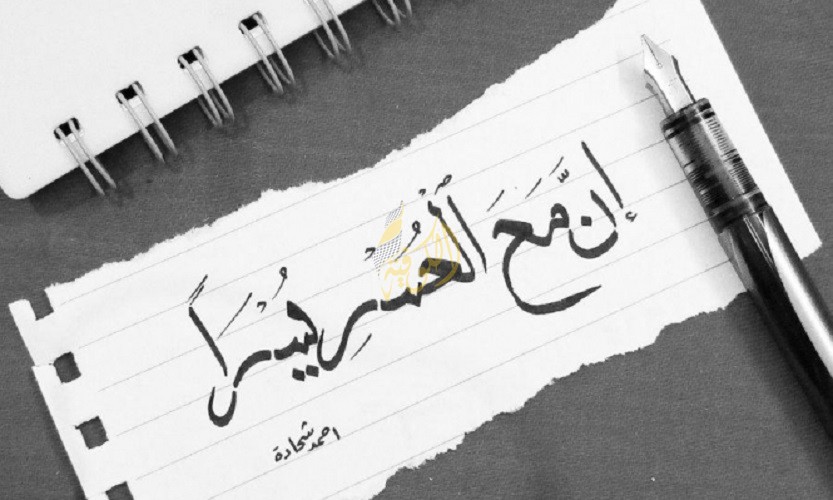 إِنَّ مَعَ ٱلْعُسْرِ يُسْرًا
احمد شحادة